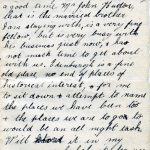 a good time. Mr John Hador,
that is the married brother
I am staying with, is a very fine
fellow, but is very busy with
his business just now, & has
not much time to get about
with us. Edinburgh is a fine
old place no end of places of
historical interest, & for me
to sit down & attempt to name
the places we have been too
& the places we are to go to
would be an all night task
Will it in my